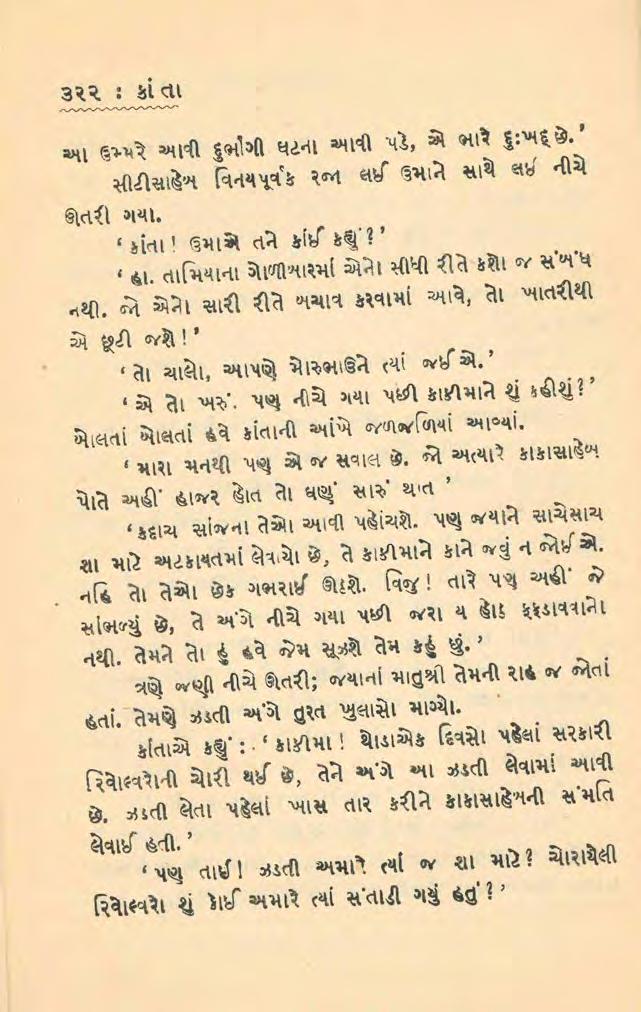 ૩૨૨ : કાંતા
આ ઉમ્મરે આવી દુર્ભાગી ઘટના આવી પડે, એ ભારે દુઃખદ છે.’
સીટીસાહેબ વિનયપૂર્વક રજા લઈ ઉમાને સાથે લઈ નીચે
ઊતરી ગયા.
‘ કાંતા ! ઉમાએ તને કાંઈ કહ્યું ?’
‘ હા. તામિયાના ગોળીબારમાં એનો સીધી રીતે કશો જ સંબંધ
નથી. જો એનો સારી રીતે બચાવ કરવામાં આવે, તો ખાતરીથી
એ છૂટી જશે ! ’
‘ તો ચાલો, આપણે મોરુભાઉને ત્યાં જઈએ.’
‘ એ તો ખરું. પણ નીચે ગયા પછી કાકીમાને શું કહીશું ?’
બોલતાં બોલતાં હવે કાંતાની આંખે જળજળિયાં આવ્યાં.
‘ મારા મનથી પણ એ જ સવાલ છે. જો અત્યારે કાકાસાહેબ
પોતે અહીં હાજર હોત તો ઘણું સારું થાત ’
‘ કદાચ સાંજના તેઓ આવી પહોંચશે. પણ જયાને સાચેસાચ
શા માટે અટકાયતમાં લેવાયો છે, તે કાકીમાને કાને જવું ન જોઈએ.
નહિ તો તેઓ છેક ગભરાઈ ઊઠશે. વિજુ ! તારે પણ અહીં જે
સાંભળ્યું છે, તે અંગે નીચે ગયા પછી જરા ય હોઠ ફફડાવવાનો
નથી. તેમને તો હું હવે જેમ સૂઝશે તેમ કહું છું.’
ત્રણે જણી નીચે ઊતરી; જયાનાં માતુશ્રી તેમની રાહ જ જોતાં
હતાં. તેમણે ઝડતી અંગે તુરત ખુલાસો માગ્યો.
કાંતાએ કહ્યું : ‘ કાકીમા ! થોડાએક દિવસો પહેલાં સરકારી
રિવોલ્વરોની ચોરી થઈ છે, તેને અંગે આ ઝડતી લેવામાં આવી
છે. ઝડતી લેતા પહેલાં ખાસ તાર કરીને કાકાસાહેબની સંમતિ
લેવાઈ હતી.’
‘ પણ તાઈ ! ઝડતી અમારે ત્યાં જ શા માટે ? ચોરાયેલી
રિવોલ્વરો શું કોઈ અમારે ત્યાં સંતાડી ગયું હતું ? ’